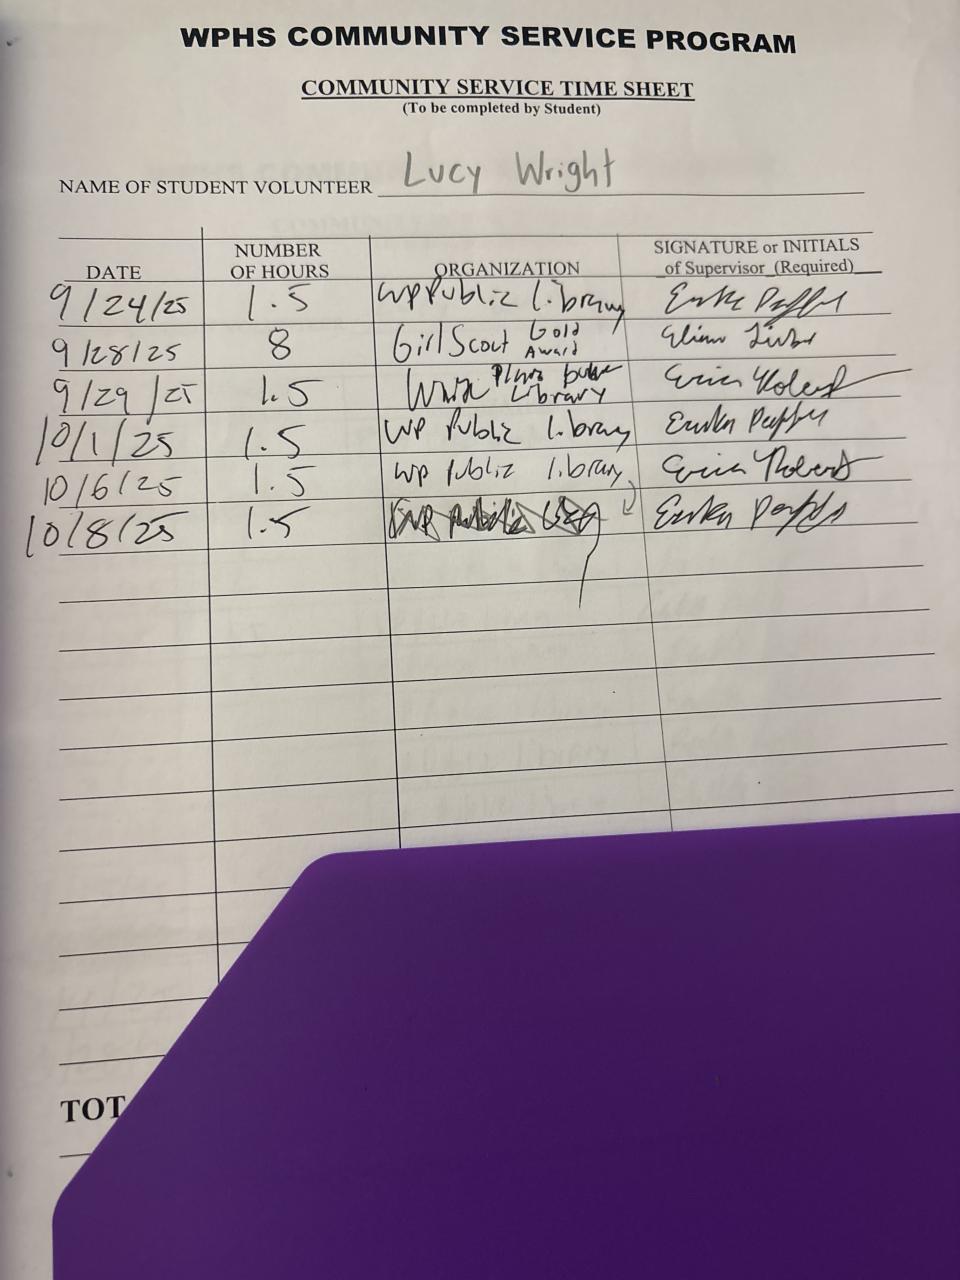 WPHS COMMUNITY SERVICE PROGRAM
COMMUNITY SERVICE TIME SHEET
(To be completed by Student)
NAME OF STUDENT VOLUNTEER Lucy Wright
DATE NUMBER OF HOURS ORGANIZATION SIGNATURE or INITIALS of Supervisor (Required)
9/24/25 1.5 WP Public Library Erika
9/28/25 8 Girl Scout Gold Award
9/29/25 1.5 Plains Library
10/1/25 1.5 WP Public Library Erika
10/6/25 1.5 WP Public Library
10/8/25 1.5 Erika
TOT